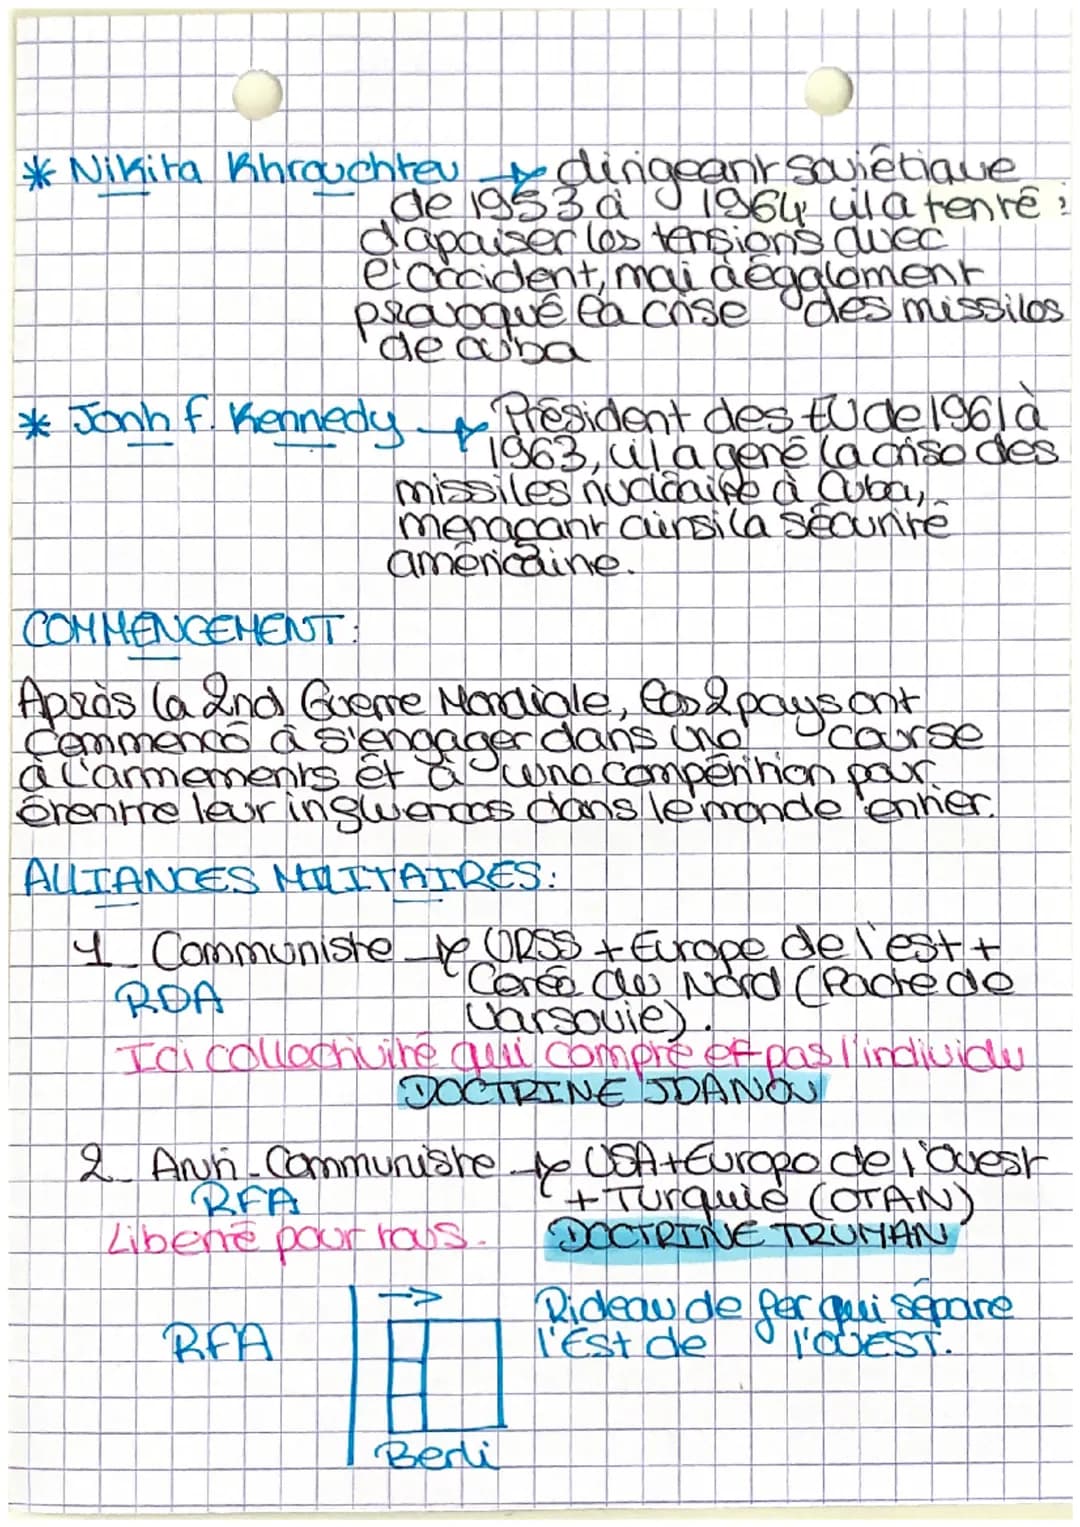 * Nikita Khrouchtev → dirigeant soviétique
de 1953 à 1964, il a tenté :
d'apaiser les tensions avec
l'occident, mai à également
provoqué la crise des missiles
de cuba
* Jonh f. Kennedy → Président des EU de 1961 à
1963, il a géré la crise des
missiles nucléaire à Cuba,
menaçant ainsi la sécurité
américaine.
COMMENCEMENT:
Après la 2nd Guerre Mondiale, les 2 pays ont
commencé à s'engager dans une course
à l'armements et à une compétition pour
étentre leur influences dans le monde entier.
ALLIANCES MILITAIRES:
1_ Communiste → URSS + Europe de l'est +
RDA
Corée du Nord (Pacte de
Varsovie).
Ici collectivité qui compte et pas l'individu
DOCTRINE JDANOV
2_ Anti-Communiste → USA+Europe de l'Ouest
RFA
+ Turquie (OTAN)
Liberté pour tous.
DOCTRINE TRUMAN
Rideau de fer qui sépare
RFA
l'Est de l'OUEST.
Berli